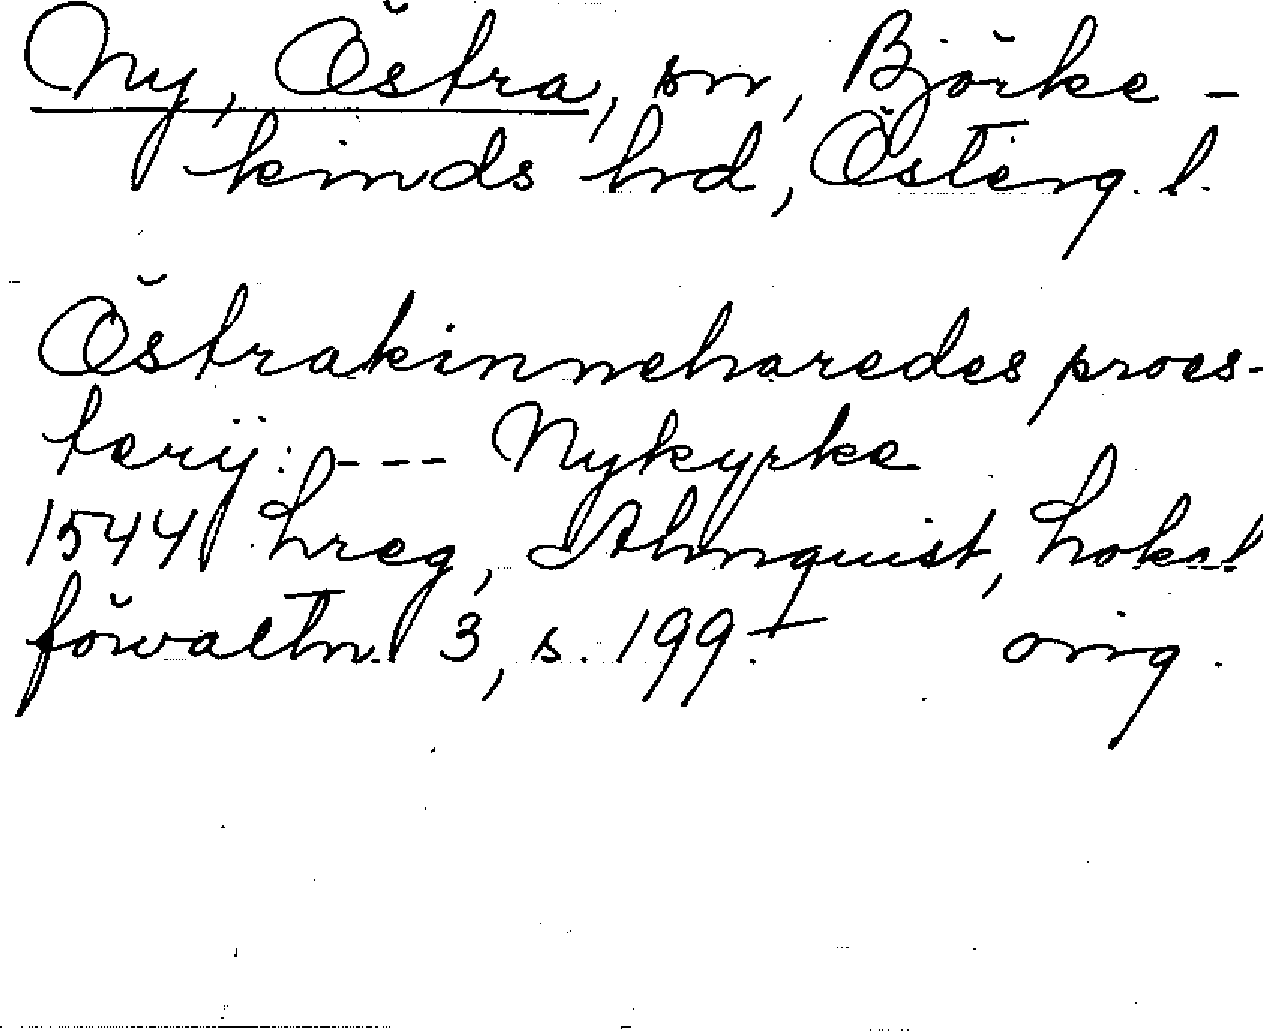 Ny, Östra, sn, Björke-
kinds hrd, Österg. l.
Östrakinneharedes proes-
terij: --- Nykyrke
1544 Lreg, Almquist, Lokal
förvaltn. 3, s. 199. orig.